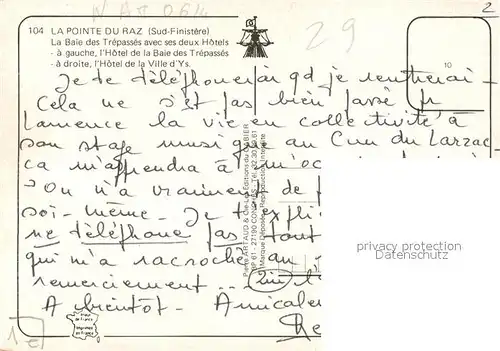 N A J 0614
2
29
104 LA POINTE DU RAZ (Sud-Finistère)
La Baie des Trépassés avec ses deux Hôtels
- à gauche, l'Hôtel de la Baie des Trépassés
- à droite, l'Hôtel de la Ville d'Ys.
10
Je te téléphonerai qd je rentrerai -
Cela ne s'est pas bien passé pr
Laurence la vie en collectivité à
son stage musique au Cun du Larzac -
ça m'apprendra à m'oc
On n'a vraiment de
soi-même. Je t'expli
ne téléphone pas tout
qui m'a raccroché au
remerciement... 2in l'
A bientôt - Amicale
Pierre ARTAUD & Cie - Les Editions du GABIER
Marque Déposée - Reproduction Interdite
privacy protection
Datenschutz
1e